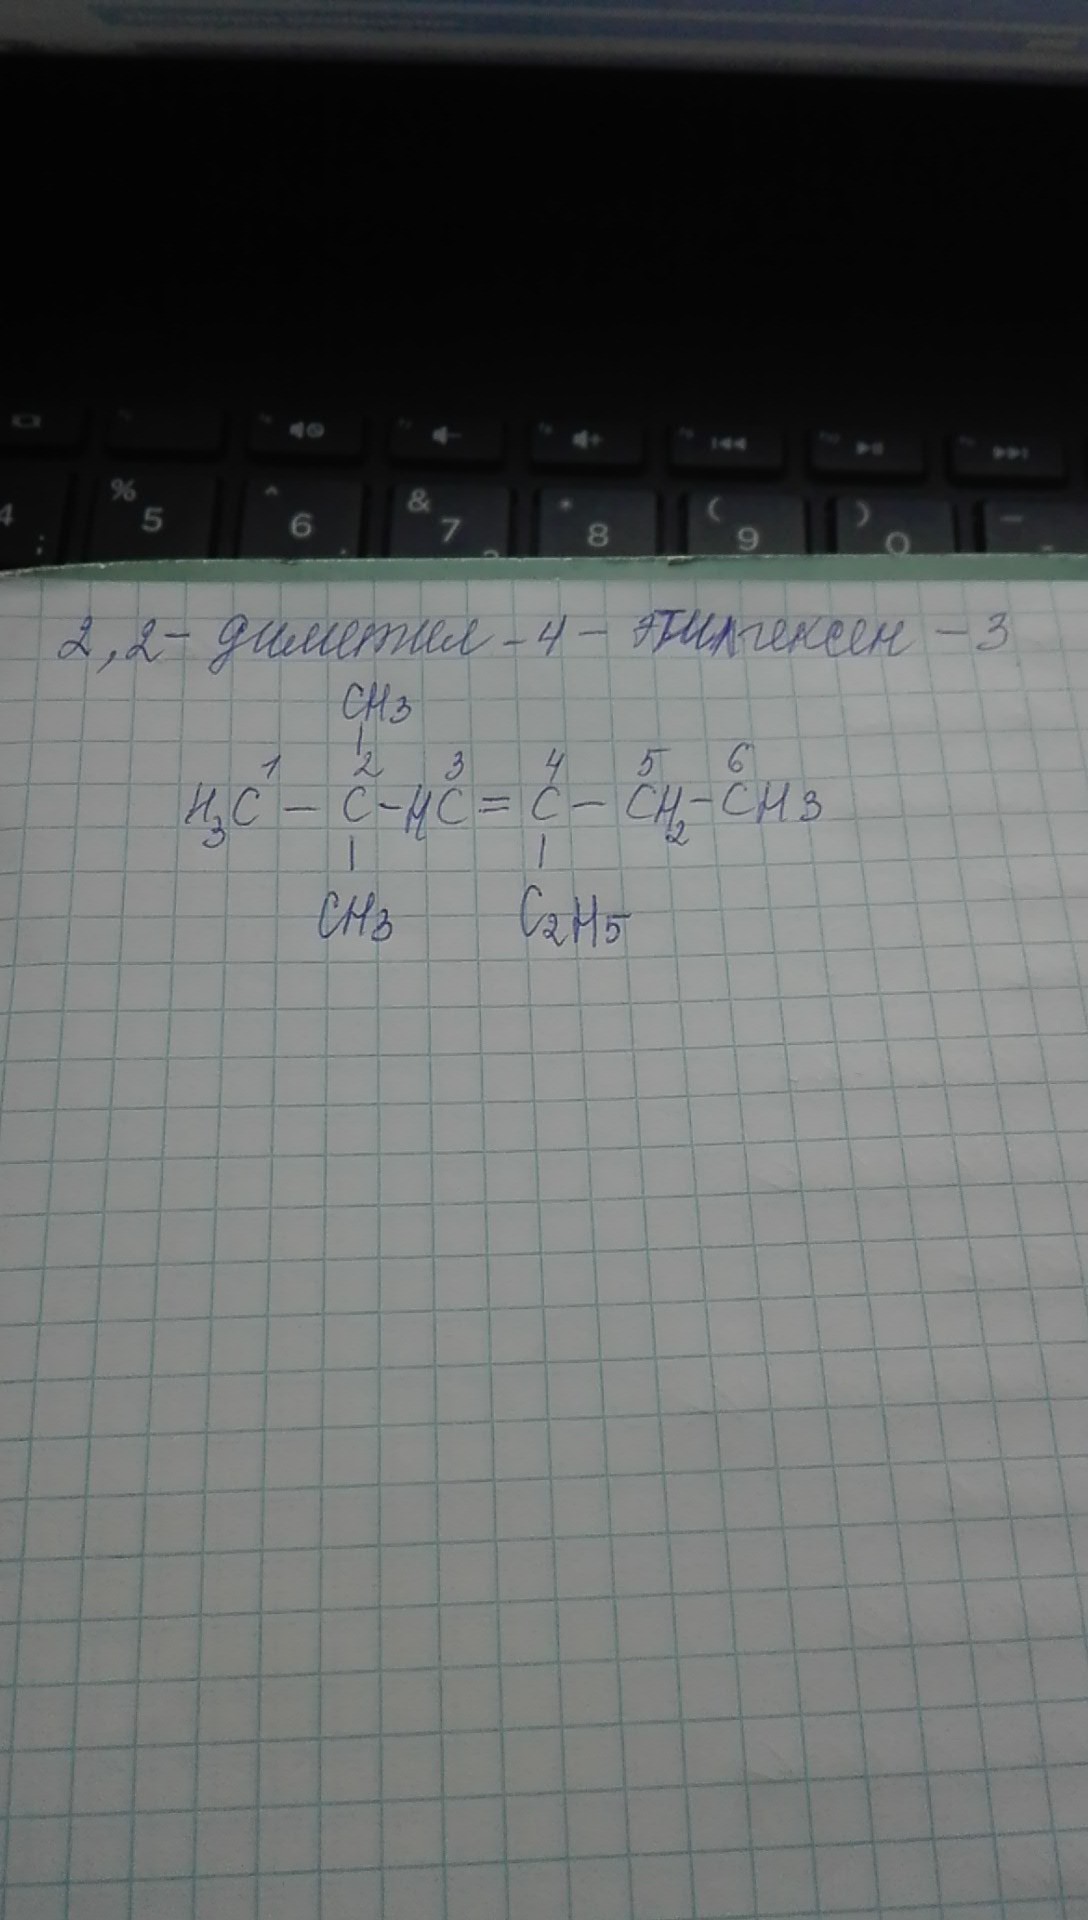 %
5
^
6
&
7
*
8
(
9
)
0
4
;
2,2- диметил -4- этилгексен -3
CH3
1 2 3 4 5 6
H3C - C - HC = C - CH2 - CH3
CH3 C2H5